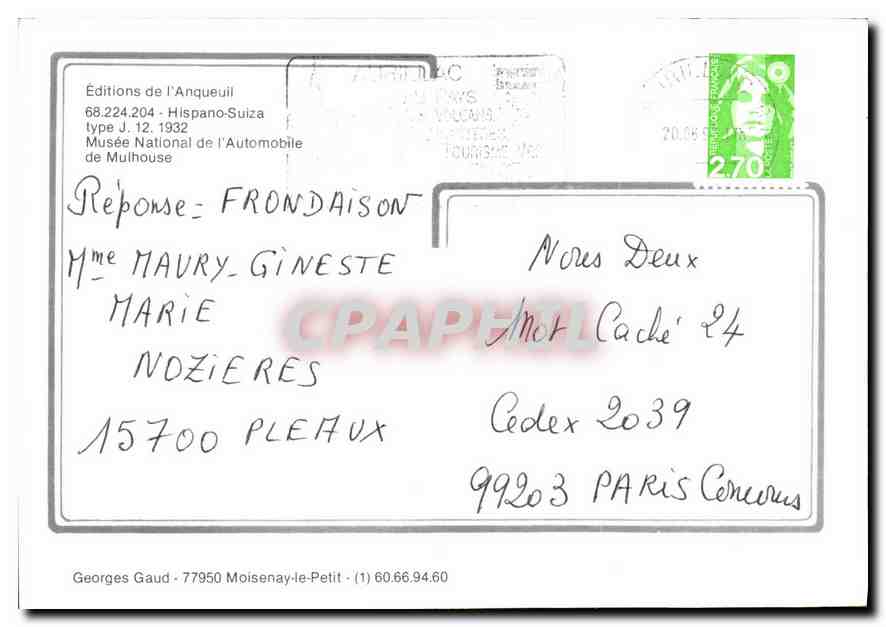 Éditions de l'Anqueuil
68.224.204 - Hispano-Suiza
type J. 12. 1932
Musée National de l'Automobile
de Mulhouse
PAYS
VOLCANS
TOURISME
20.06
REPUBLIQUE FRANÇAISE
2,70
LA POSTE
Réponse = FRONDAISON
Mme MAURY-GINESTE
MARIE
NOZIERES
15700 PLEAUX
Nous Deux
Mot Caché 24
Cedex 2039
99203 PARIS Concours
CPAPHIL
Georges Gaud - 77950 Moisenay-le-Petit - (1) 60.66.94.60